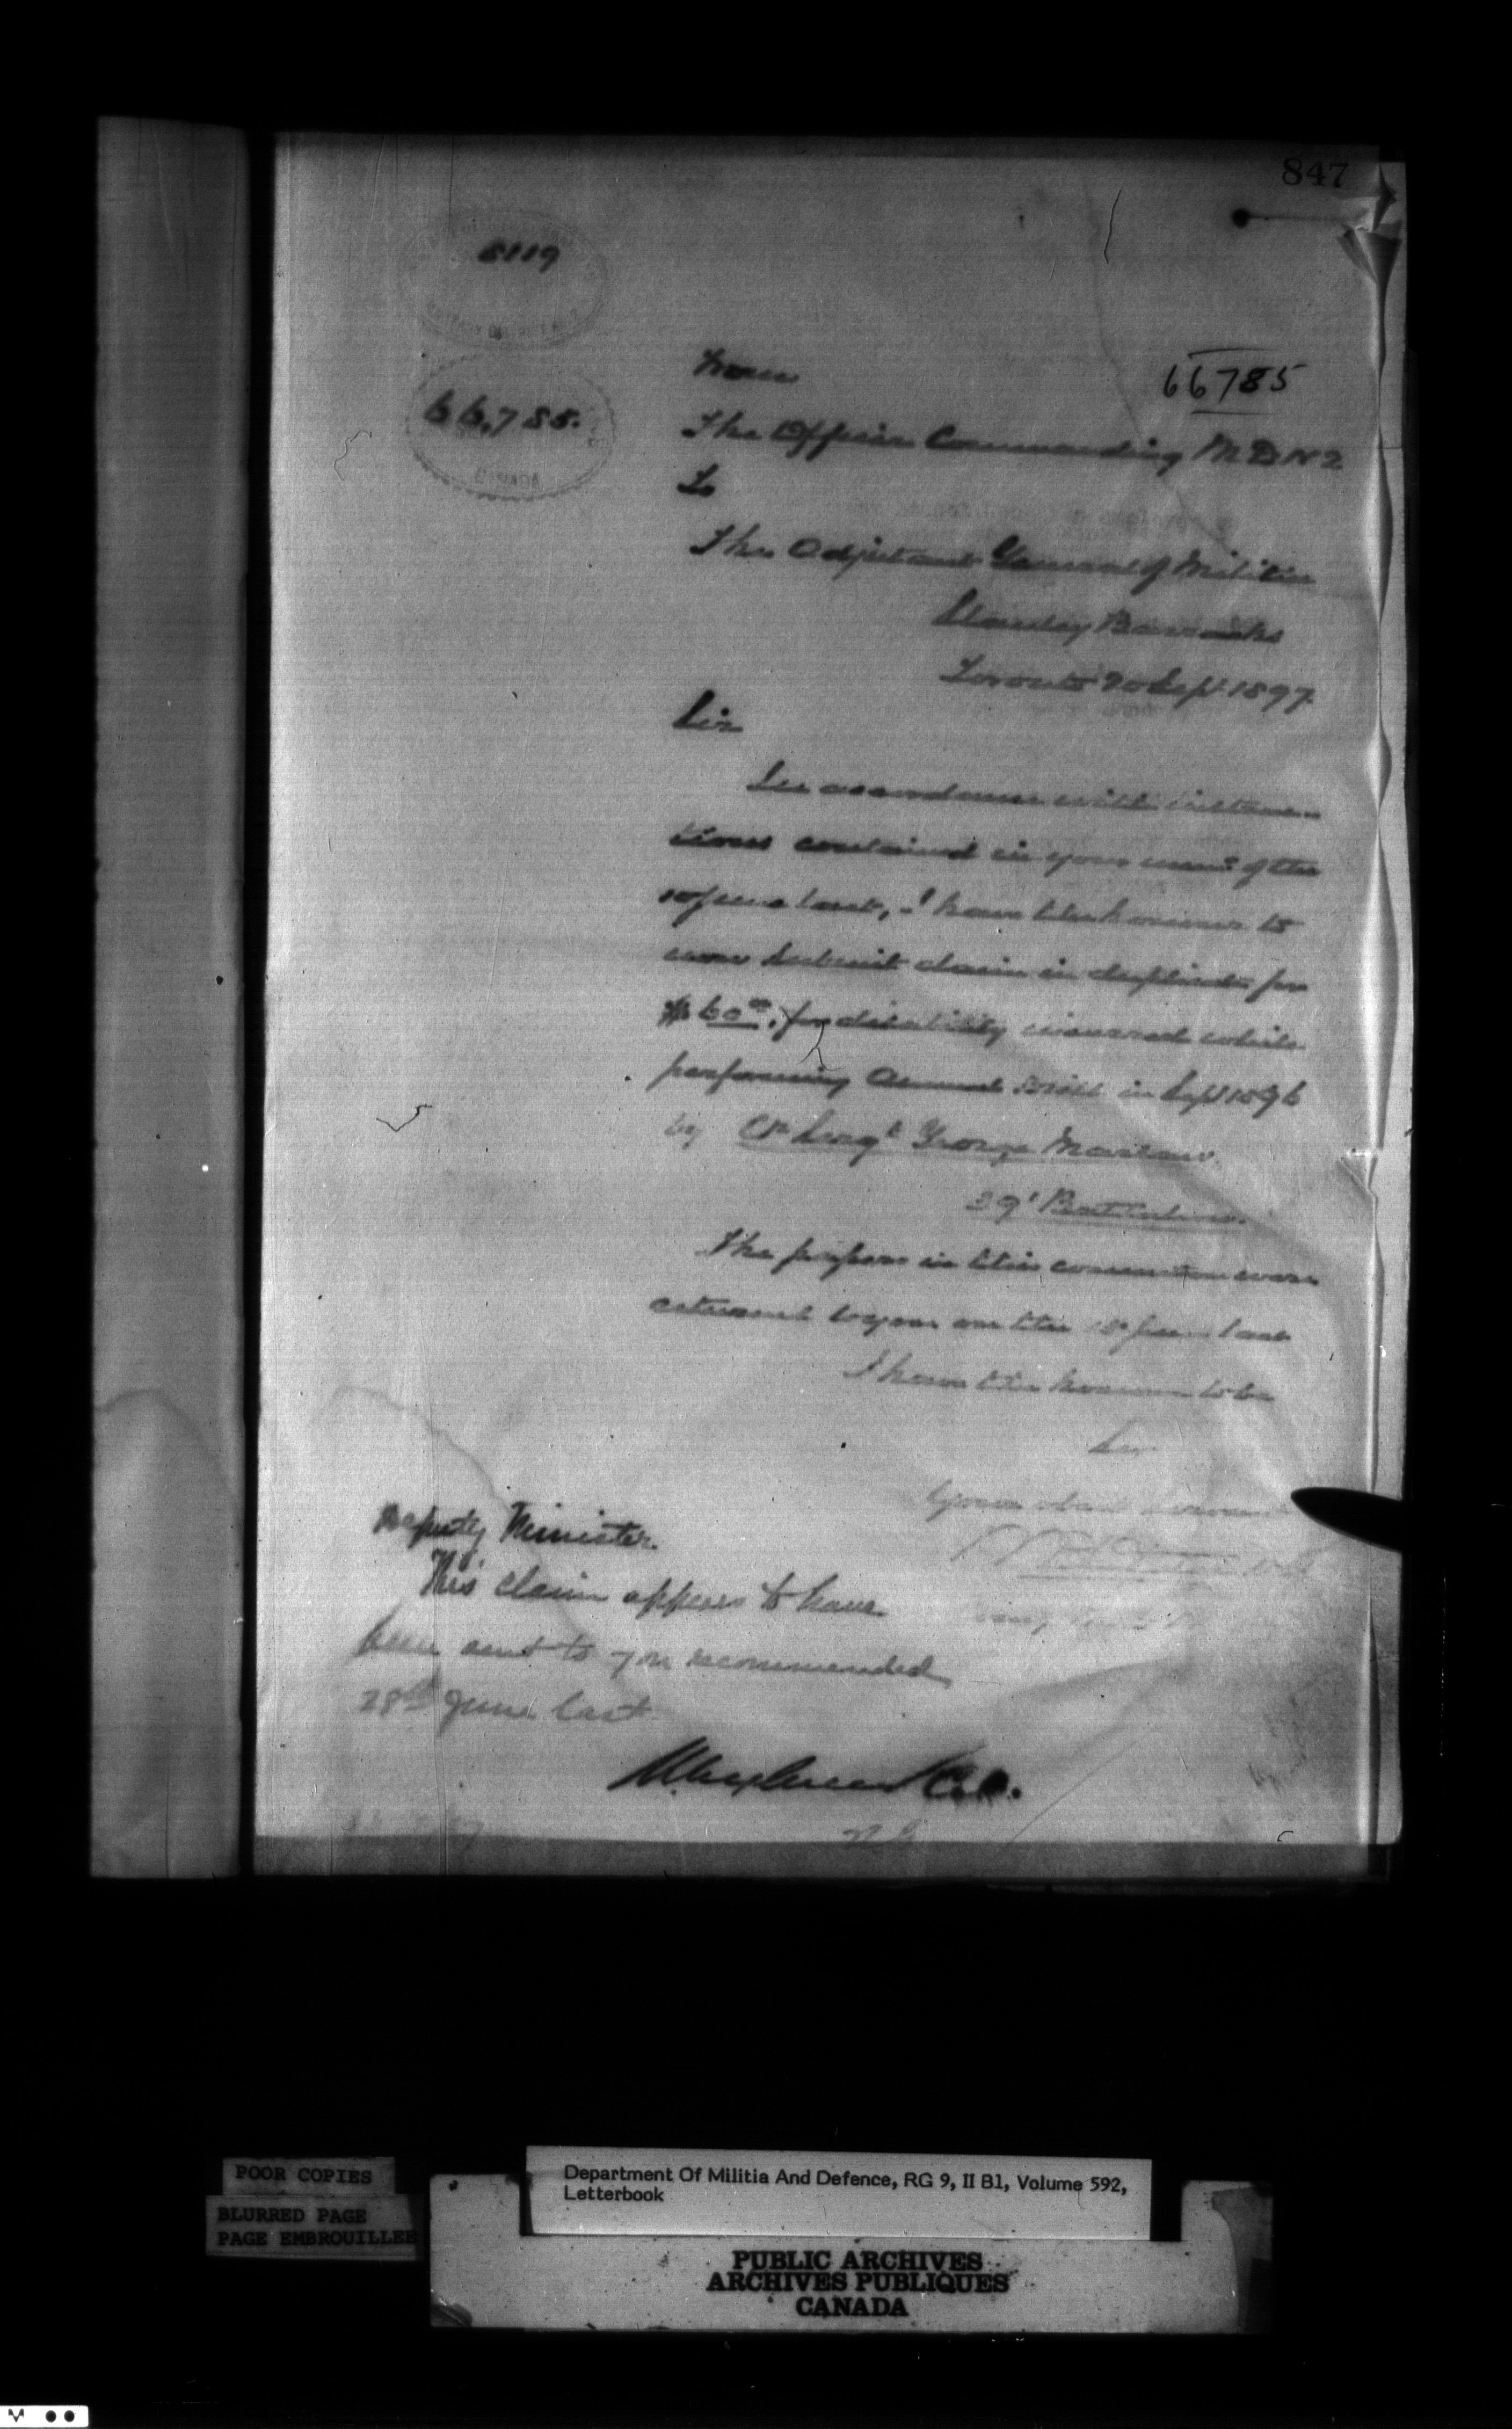 847
8119
66785
66,785.
CANADA
From
The Officer Commanding M D No 2
To
The Adjutant General of Militia
Stanley Barracks
Toronto 20 Sept 1897.
Sir
In accordance with instruc-
tions contained in your memo of the
10 June last, I have the honour to
now submit claim in duplicate for
$60.00, for disability incurred while
performing Annual Drill in Sept 1896
by Cr Sergt George
39t Battalion.
The papers in this connection were
returned to you on the June last
I have the honour to be
Sir
Your obedt Servant
Deputy Minister.
This claim appears to have
been sent to you recommended
28th June last
Col.
A G
POOR COPIES
BLURRED PAGE
PAGE EMBROUILLEE
Department Of Militia And Defence, RG 9, II B1, Volume 592,
Letterbook
PUBLIC ARCHIVES
ARCHIVES PUBLIQUES
CANADA